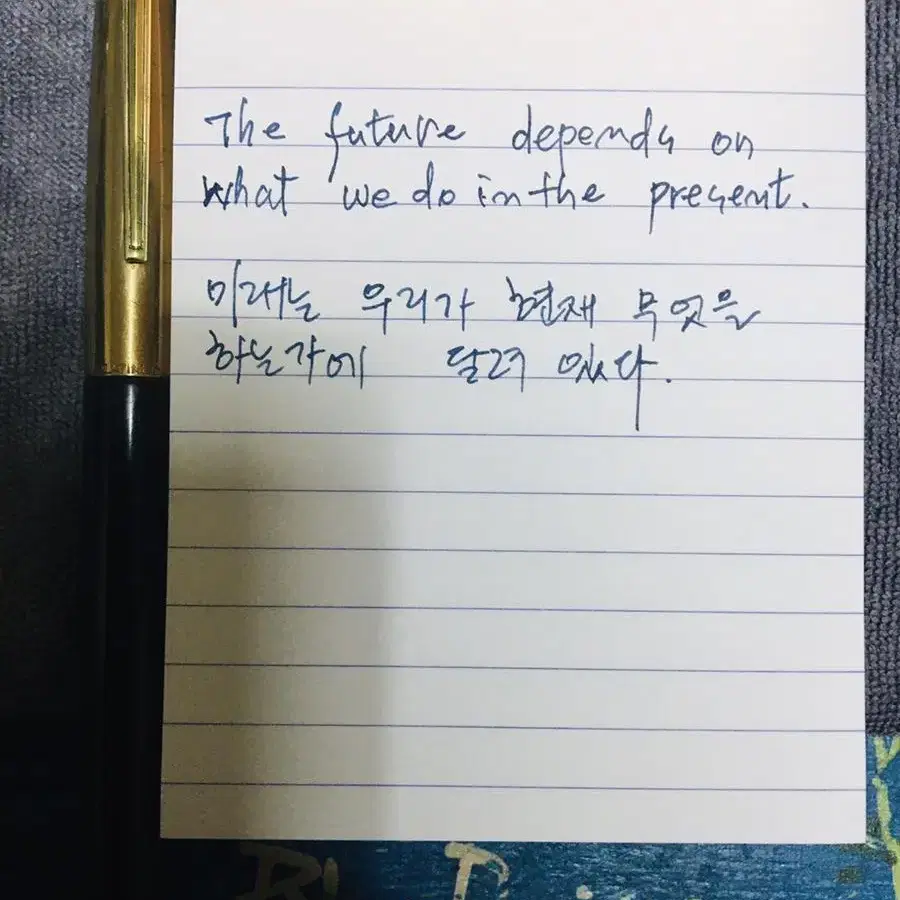 The future depends on
what we do in the present.
미래는 우리가 현재 무엇을
하는가에 달려 있다.